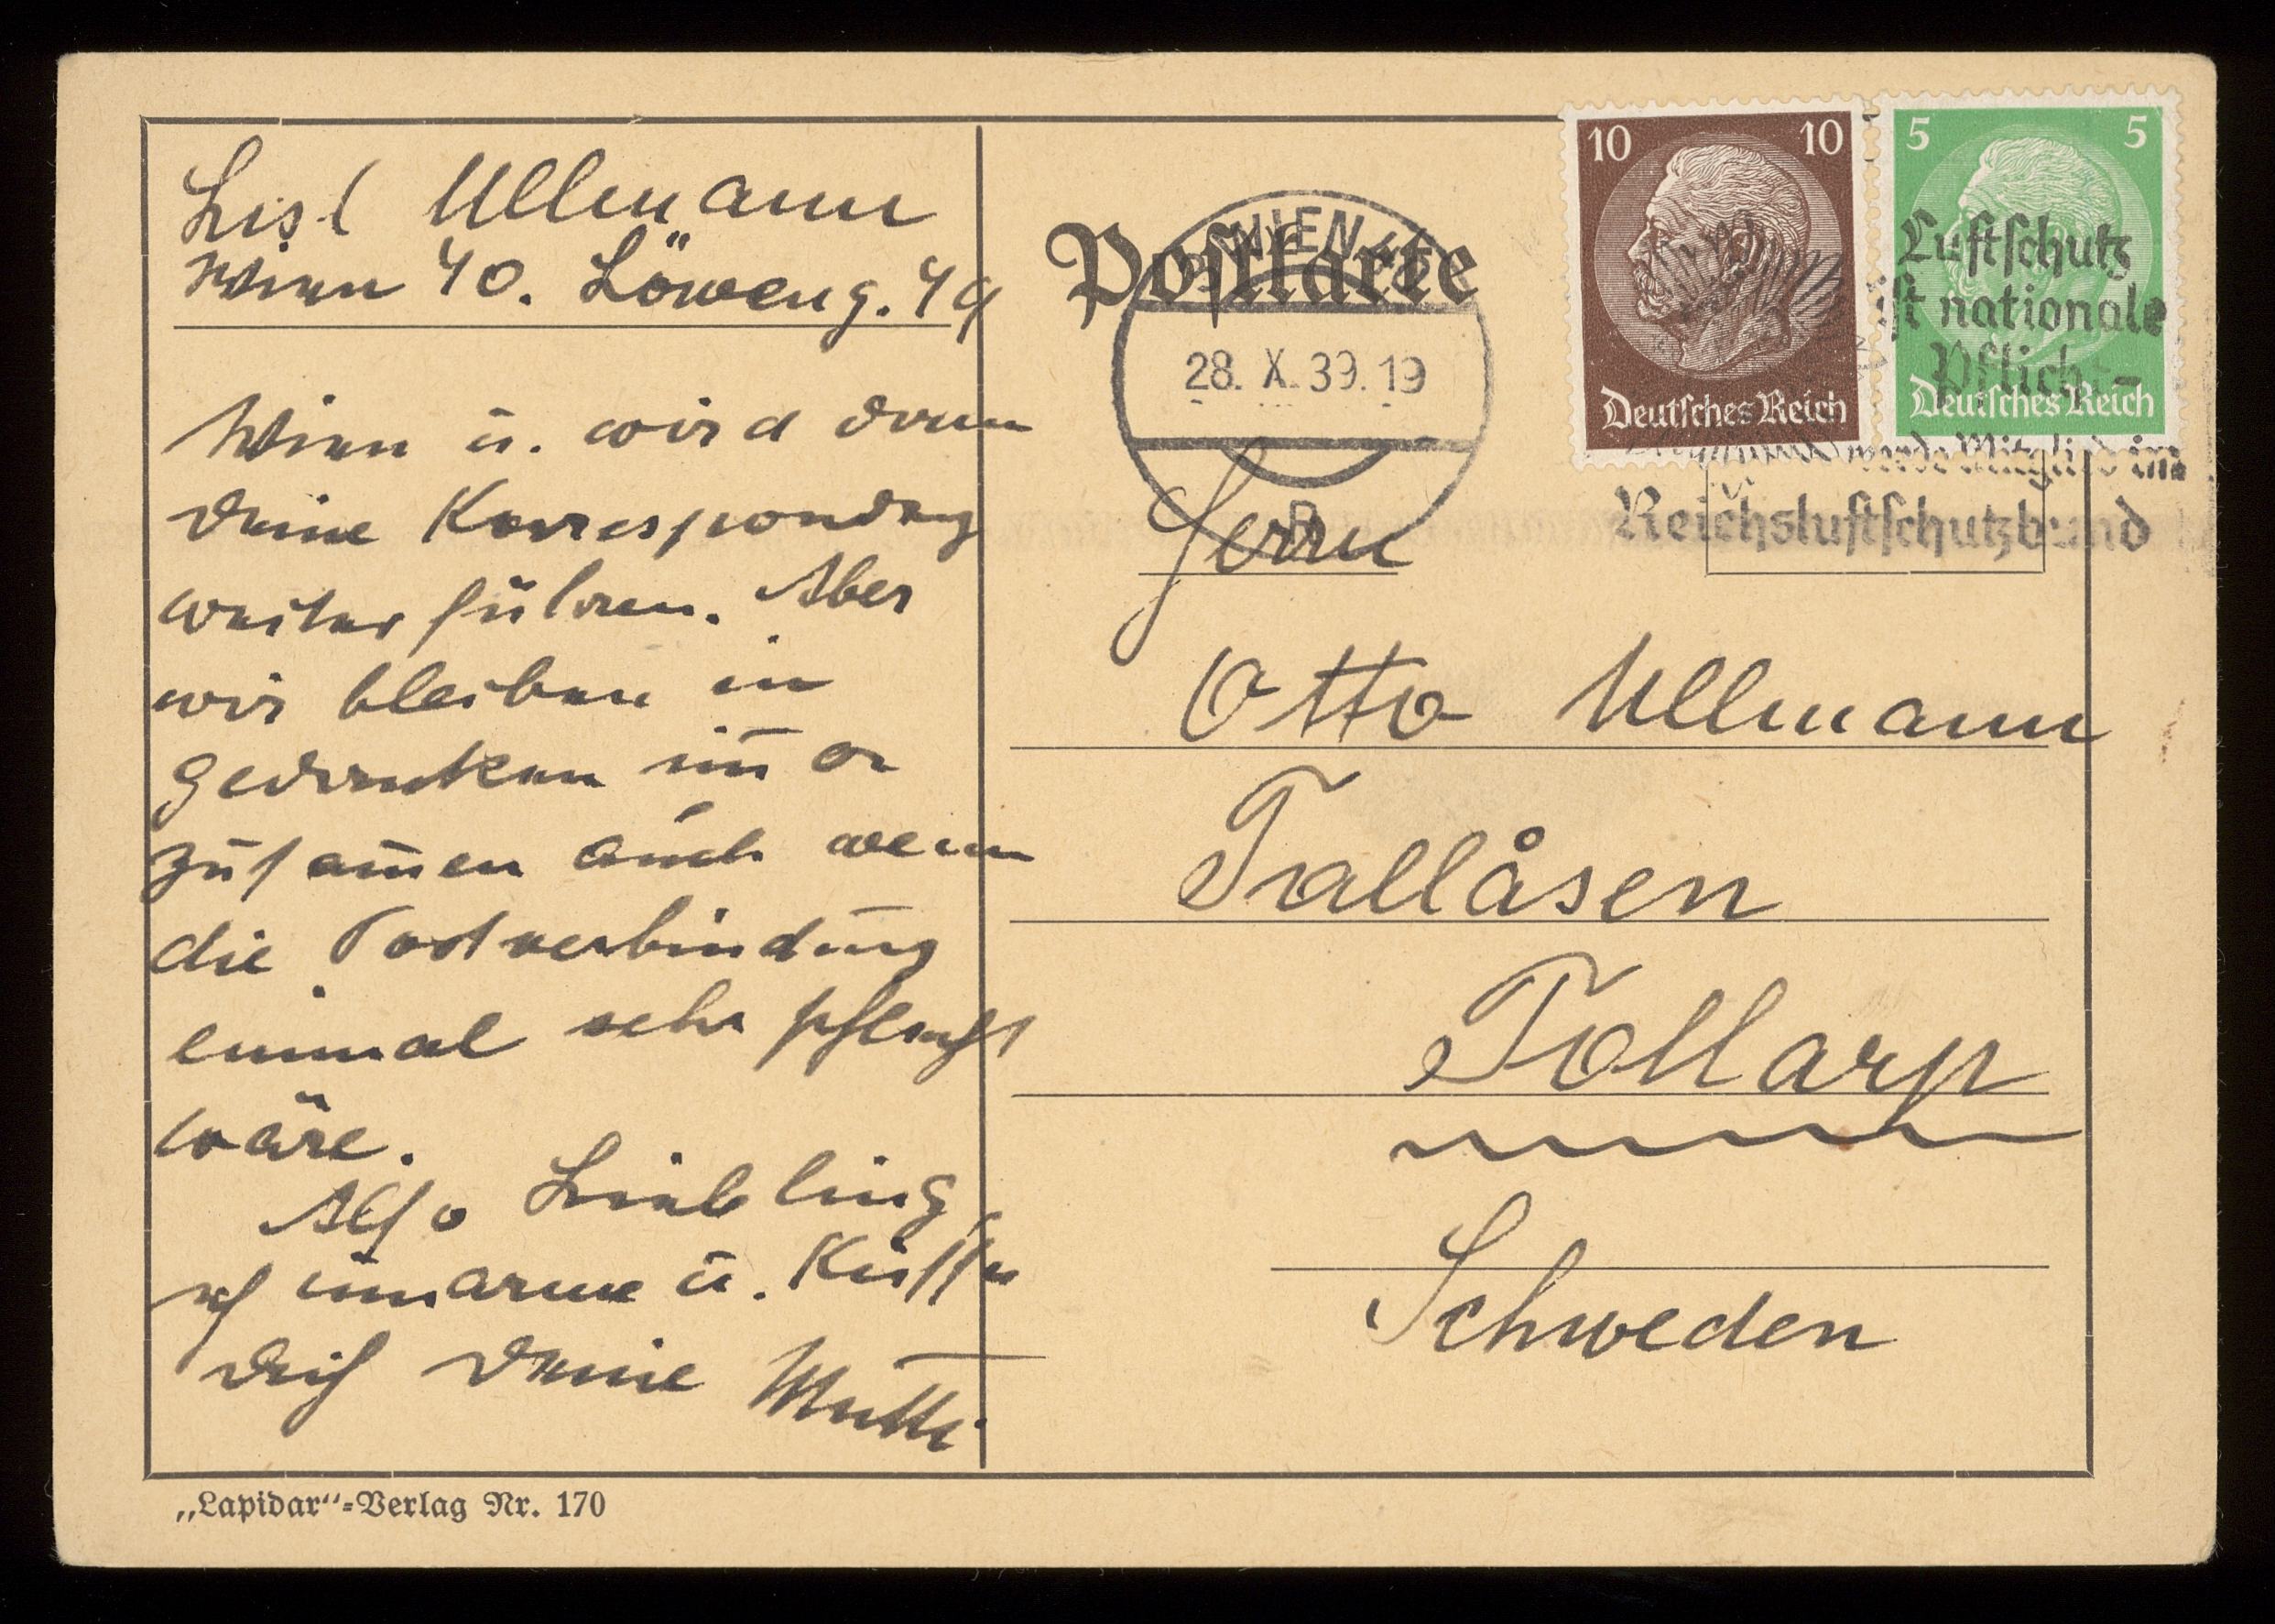 Lisl Ullmann
Wien 40. Löweng. 49
Wien u. wird dann
Deine Korrespondenz
weiter führen. Aber
wir bleiben in
Gedanken im̅er
zusam̅en auch wenn
die Postverbindung
einmal sehr schlecht
wäre.
Also Liebling,
ich umarme u. Küsse
Dich Deine Mutti
„Lapidar“-Verlag Nr. 170
Postkarte
WIEN
28. X. 39. 19
10 10
Deutsches Reich
5 5
Deutsches Reich
Luftschutz
ist nationale
Pflicht
werde Mitglied im
Reichsluftschutzbund
Herrn
Otto Ullmann
Tallåsen
Tollarp
Schweden